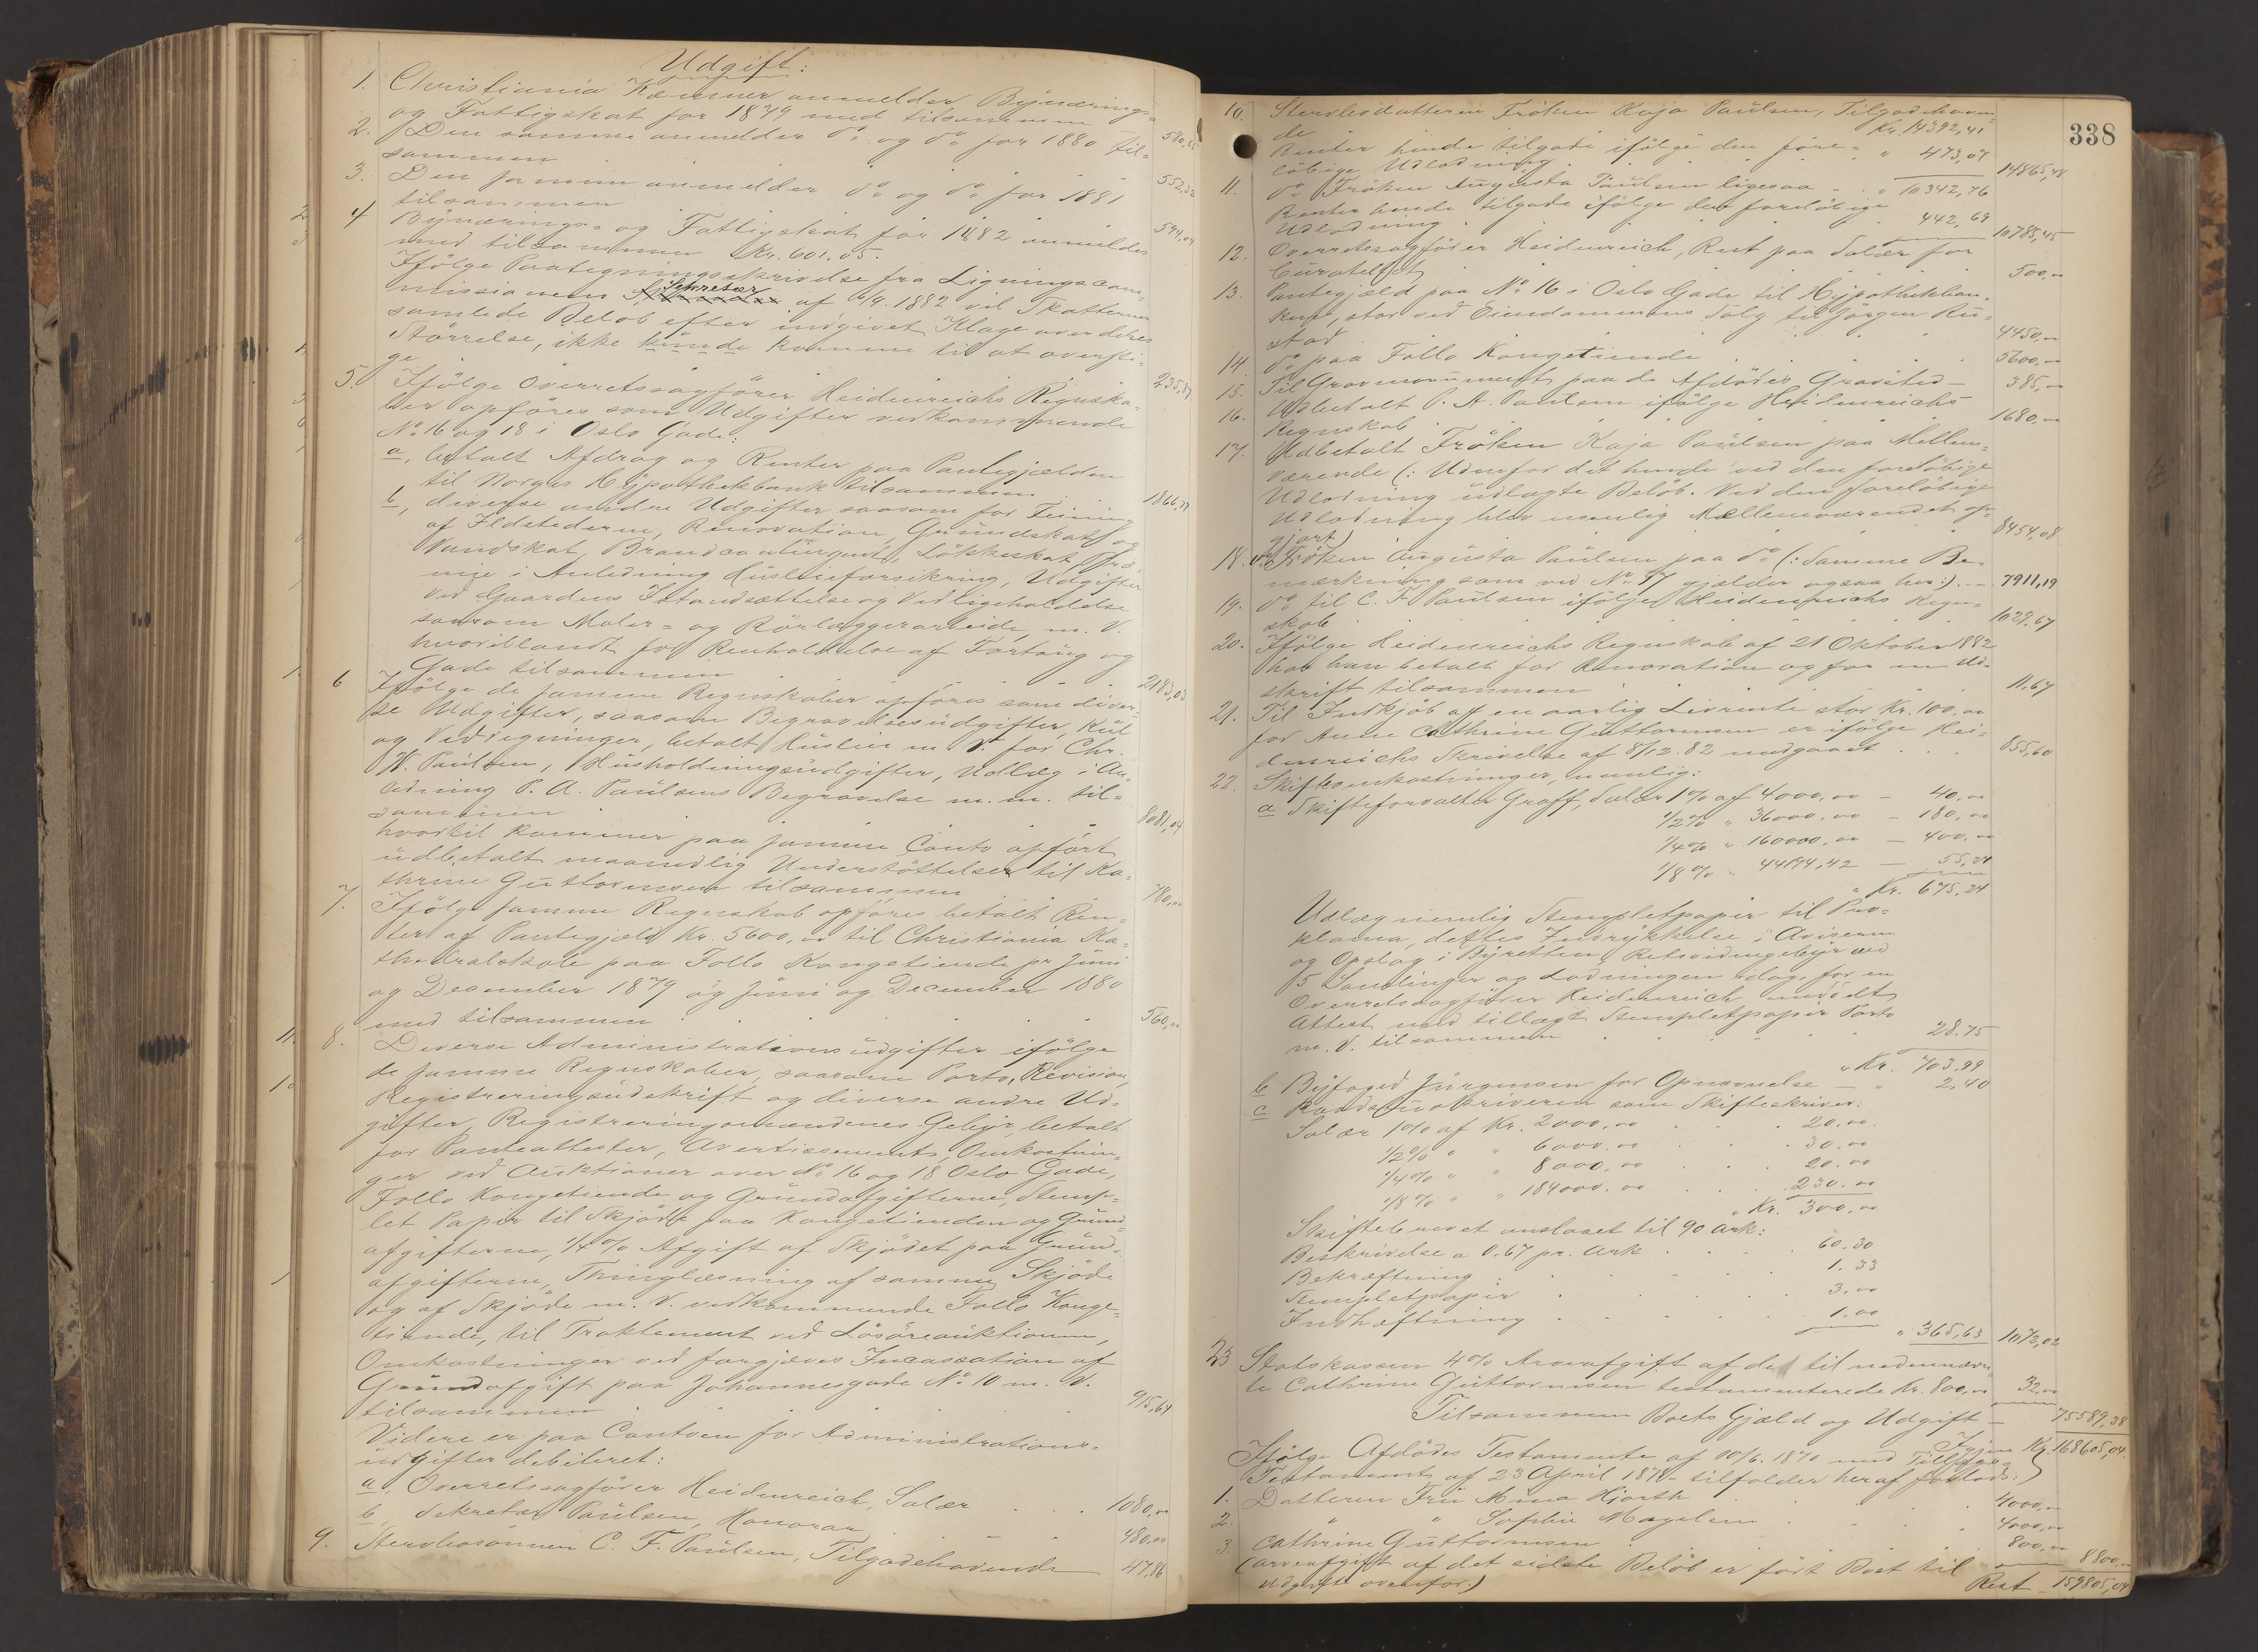 Udgift:
1. Christiania Kæmner anmelder Bynærings=
og Fattigskat for 1879 med tilsammen 580,65
2. Den samme anmelder do og do for 1880 til=
sammen 552,32
3. Den samme anmelder do og do for 1881
tilsammen 594,04
4 Bynærings= og Fattigskat for 1882 anmeldes
med tilsammen Kr. 601.05.
Ifölge Paategningsskrivelse fra Ligningscom=
missionens Sekretær af 4/9. 1882 vil Skatternes
samlede Belöb efter indgivet Klage over deres
Störrelse, ikke kunde komme til at oversti=
ge 235,87
5. Ifölge Overretssagförer Heidenreichs Regnska=
ber opföres som Udgifter vedkommende
No 16 og 18 i Oslo Gade:
a, betalt Afdrag og Renter paa Pantegjælden
til Norges Hypothekbank tilsammen 1866,37
b, diverse andre Udgifter saasom for Feining
af Ildstederne, Renovation, Grundskat og
Vandskat, Brandcontingent, Lökkeskat, Præ=
mie i Anledning Huslieforsikring, Udgifter
ved Gaardens Istandsættelse og Vedligeholdelse
saasom Maler= og Rörlæggerarbeide, m. V.
hvoriblandt for Renholdelse af Fortoug og
Gade tilsammen 2183,03
6 Ifölge de samme Regnskaber opföres som diver=
se Udgifter, saasom Begravelsesudgifter, Kul
og Vedregninger, betalt Husleie m. V. for Chr.
W. Paulsen, Husholdningsudgifter, Udlæg i An=
ledning P. A. Paulsens Begravelse m. m. til=
sammen 8081,04
hvortil kommer paa samme Conto opfört
udbetalt maanedlig Understöttelse til Ka=
thrine Guttormsen tilsammen 780,00
7. Ifölge samme Regnskab opföres betalt Ren=
ter af Pantegjæld Kr. 5600,00 til Christiania Ka=
thedralskole paa Follo Kongetiende pr Juni
og December 1879 og Juni og December 1880
med tilsammen 560,00
8. Diverse Administrationsudgifter ifölge
de samme Regnskaber, saasom Porto, Revision,
Registreringsudskrift og diverse andre Ud=
gifter, Registreringsmændenes Gebyr, betalt
for Panteattester, Avertissements, Omkostnin=
ger ved Auktioner over No 16 og 18 Oslo Gade,
Follo Kongetiende og Grundafgifterne, Stemp=
let Papir til Skjöde paa Kongetienden og Grund=
afgifterne, 1/4 % Afgift af Skjödet paa Grund=
afgifterne, Thinglæsning af samme Skjöde
og af Skjöde m. V. vedkommende Follo Konge=
tiende, til Traktement ved Lösöreauktionen,
Omkostninger ved forgjæves Incassation af
Grundafgift paa Johannesgade No 10 m. V.
tilsammen 915,64
Videre er paa Contoen for Administrations=
udgifter debiteret:
a, Overretssagförer Heidenreich, Salær 1080,00
b, Sekretær Paulsen, Honorar 480,00
9. Stervbosönnen C. F. Paulsen, Tilgodehavende 47,86
338
10. Stervbodatteren Fröken Kaja Paulsen, Tilgodehaven=
de Kr. 14392,41
Renter hende tilgode ifölge den fore=
löbige Udlodning " 473,07 14865,48
11. do Fröken Augusta Paulsen ligesaa " 10342,76
Renter hende tilgode ifölge den forelöbige
Udlodning 442,69 10785,45
12. Overretssagförer Heidenreich, Rest paa Salær for
Curatelet 500,00
13. Pantegjæld paa No 16 i Oslo Gade til Hypothekban=
ken, stor ved Eiendommens Salg til Jörgen Ru=
stad 4450,00
14 do paa Follo Kongetiende 5600,00
15. Til Gravmonument paa de Afdödes Gravsted 385,00
16. Udbetalt P. A. Paulsen ifölge Heidenreichs
Regnskab 1680,00
17. Udbetalt Fröken Kaja Paulsen paa Mellem=
værende (: Udenfor det hende ved den forelöbige
Udlodning udlagte Belöb. Ved den forelöbige
Udlodning blev nemlig Mellemværendet op=
gjort) 8454,08
18. do Fröken Augusta Paulsen paa do (: Samme Be=
mærkning som ved No 17 gjælder ogsaa her:) 7911,19
19. do til C. F. Paulsen ifölge Heidenreichs Regn=
skab 1029,67
20. Ifölge Heidenreichs Regnskab af 21 Oktober 1882
har han betalt for Renovation og for en Ud=
skrift tilsammen 11,67
21. Til Indkjöb af en aarlig Livrente stor Kr. 100,00
for Anne Cathrine Guttormsen er ifölge Hei=
denreichs Skrivelse af 8/12. 82 medgaaet 855,60
22. Skiftesomkostninger, nemlig:
a Skifteforvalter Graff, Salær 1 % af 4000,00 - 40,00
1/2 % " 36000.00 - 180,00
1/4 % " 160000,00 - 400,00
1/8 % " 44194,42 - 55,24
" Kr. 675,24
Udlæg nemlig Stempletpapir til Pro=
klama, dettes Indrykkelse i Aviserne
og Opslag i Byretten, Retsvidnegebyr ved
5 Samlinger og Lodningen idag, for en
Overretssagförer Heidenreich meddelt
Attest med tillagt Stempletpapir Porto
m. V. tilsammen 28.75
" Kr. 703.99
b Byfoged Jürgensen for Opnævnelse " 2,40
c Raadstueskriveren som Skifteskriver:
Salær 1 % af Kr. 2000,00 20.00
1/2 % " " 6000.00 30.00
1/4 % " " 8000.00 20.00
1/8 % " " 184000.00 230.00
" Kr. 300,00
Skiftebrevet anslaaet til 90 Ark:
Beskrivelse a 0.67 pr. Ark 60.30
Bekræftning 1.33
Stempletpapir 3.00
Indhæftning 1.00
" 365,63 1072,02
23 Statskassen 4 % Arveafgift af de til nedennævn=
te Cathrine Guttormsen testamenterede Kr. 800,00 32,00
Tilsammen Boets Gjæld og Udgift 75589,38
Igjen Kr. 168605,04.
Ifölge Afdödes Testamente af 10/6. 1870 med Tillægs=
Testament af 23 April 1878 tilfalder heraf forlods:
1. Datteren Fru Mina Hjorth 4000,00
2. " " Sophie Magelsen 4000,00
3. Cathrine Guttormsen 800,00 8800,00
(Arveafgift af det sidste Belöb er fört Boet til
Udgift ovenfor.) Rest 159805,04